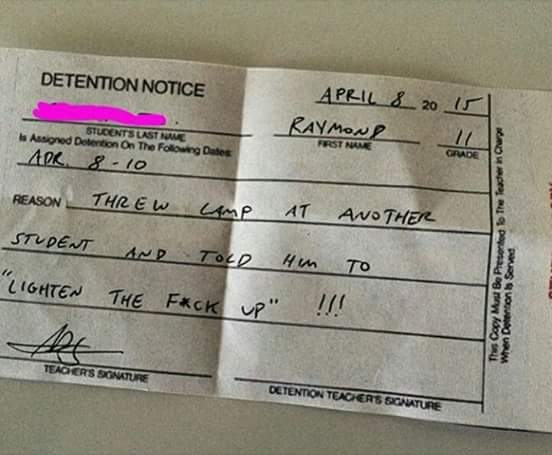 DETENTION NOTICE
APRIL 8 20 15
STUDENT'S LAST NAME
RAYMOND 11
FIRST NAME GRADE
Is Assigned Detention On The Following Dates:
APR. 8-10
REASON THREW LAMP AT ANOTHER
STUDENT AND TOLD HIM TO
"LIGHTEN THE F*CK UP" !!!
TEACHER'S SIGNATURE
DETENTION TEACHER'S SIGNATURE
This Copy Must Be Presented To The Teacher in Charge
When Detention Is Served